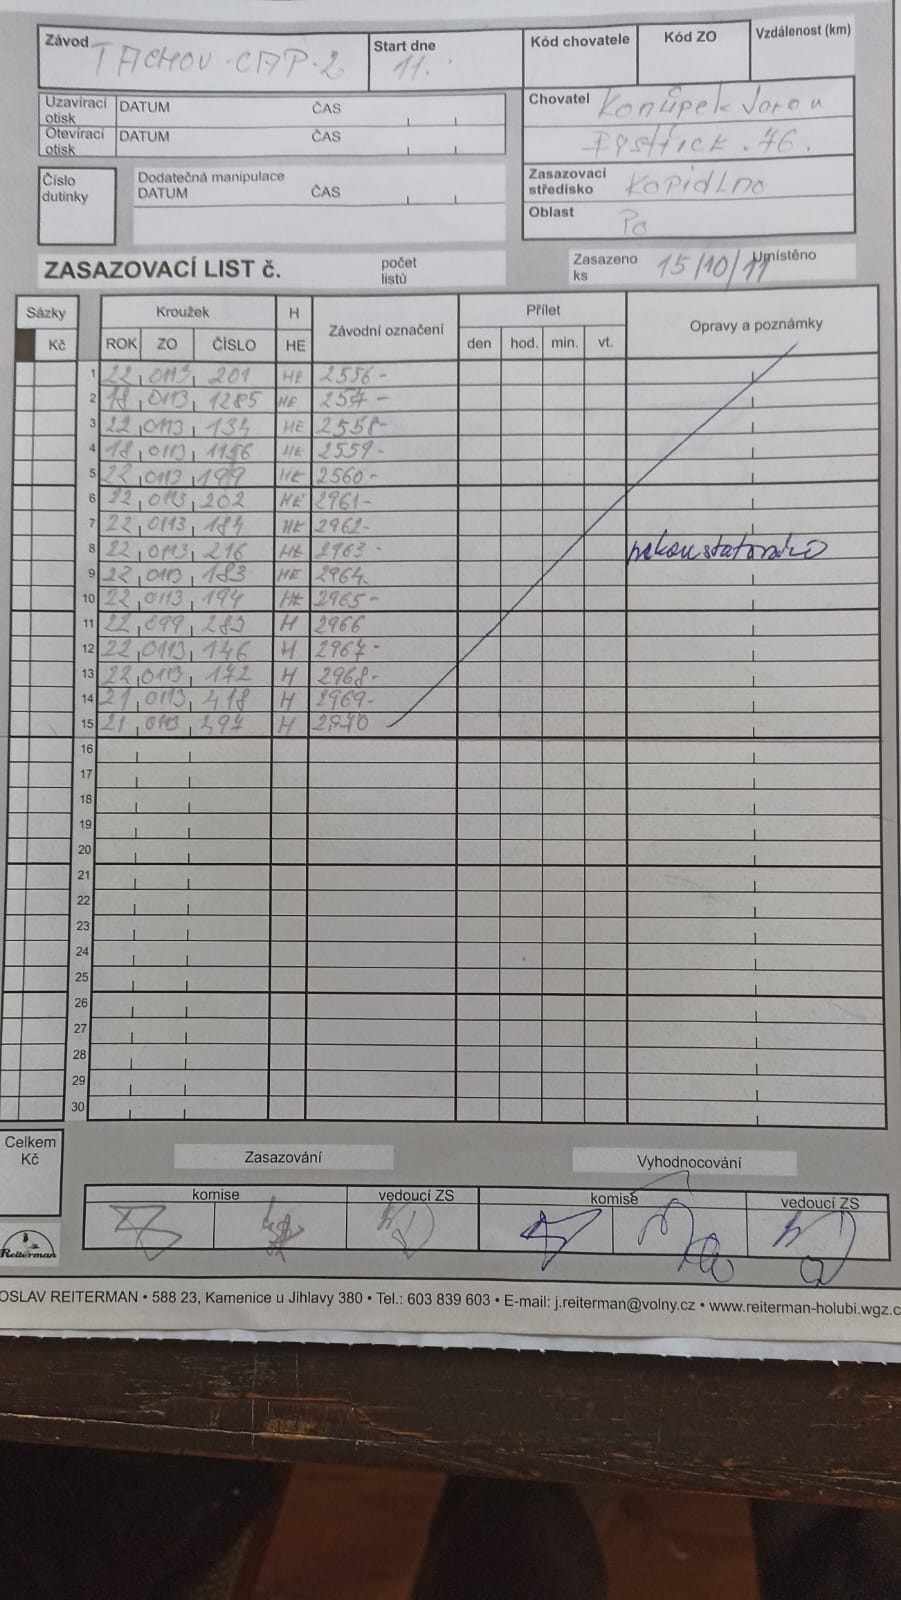 Závod TACHOV-CAP-2 Start dne 11. Kód chovatele Kód ZO Vzdálenost (km)
Uzavírací otisk DATUM ČAS
Otevírací otisk DATUM ČAS
Chovatel Konůpek
76.
Číslo dutinky
Dodatečná manipulace
DATUM ČAS
Zasazovací středisko Kopidlno
Oblast
ZASAZOVACÍ LIST č. počet listů Zasazeno ks 15/10/11 Umístěno
Sázky Kroužek H Závodní označení Přílet Opravy a poznámky
Kč ROK ZO ČÍSLO HE den hod. min. vt.
1 22 0113 201 HE 2556-
2 18 0113 1285 HE 257-
3 22 0113 134 HE 2558-
4 18 0113 1156 HE 2559-
5 22 0113 199 HE 2560-
6 22 0113 202 HE 2961-
7 22 0113 184 HE 2962-
8 22 0113 216 HE 2963-
9 22 0113 183 HE 2964-
10 22 0113 194 HE 2965-
11 22 099 283 H 2966
12 22 0113 146 H 2967-
13 22 0113 172 H 2968-
14 21 0113 418 H 2969-
15 21 0113 297 H 2970
16
17
18
19
20
21
22
23
24
25
26
27
28
29
30
Celkem Kč
Zasazování Vyhodnocování
komise vedoucí ZS komise vedoucí ZS
Reiterman
OSLAV REITERMAN • 588 23, Kamenice u Jihlavy 380 • Tel.: 603 839 603 • E-mail: j.reiterman@volny.cz • www.reiterman-holubi.wgz.c